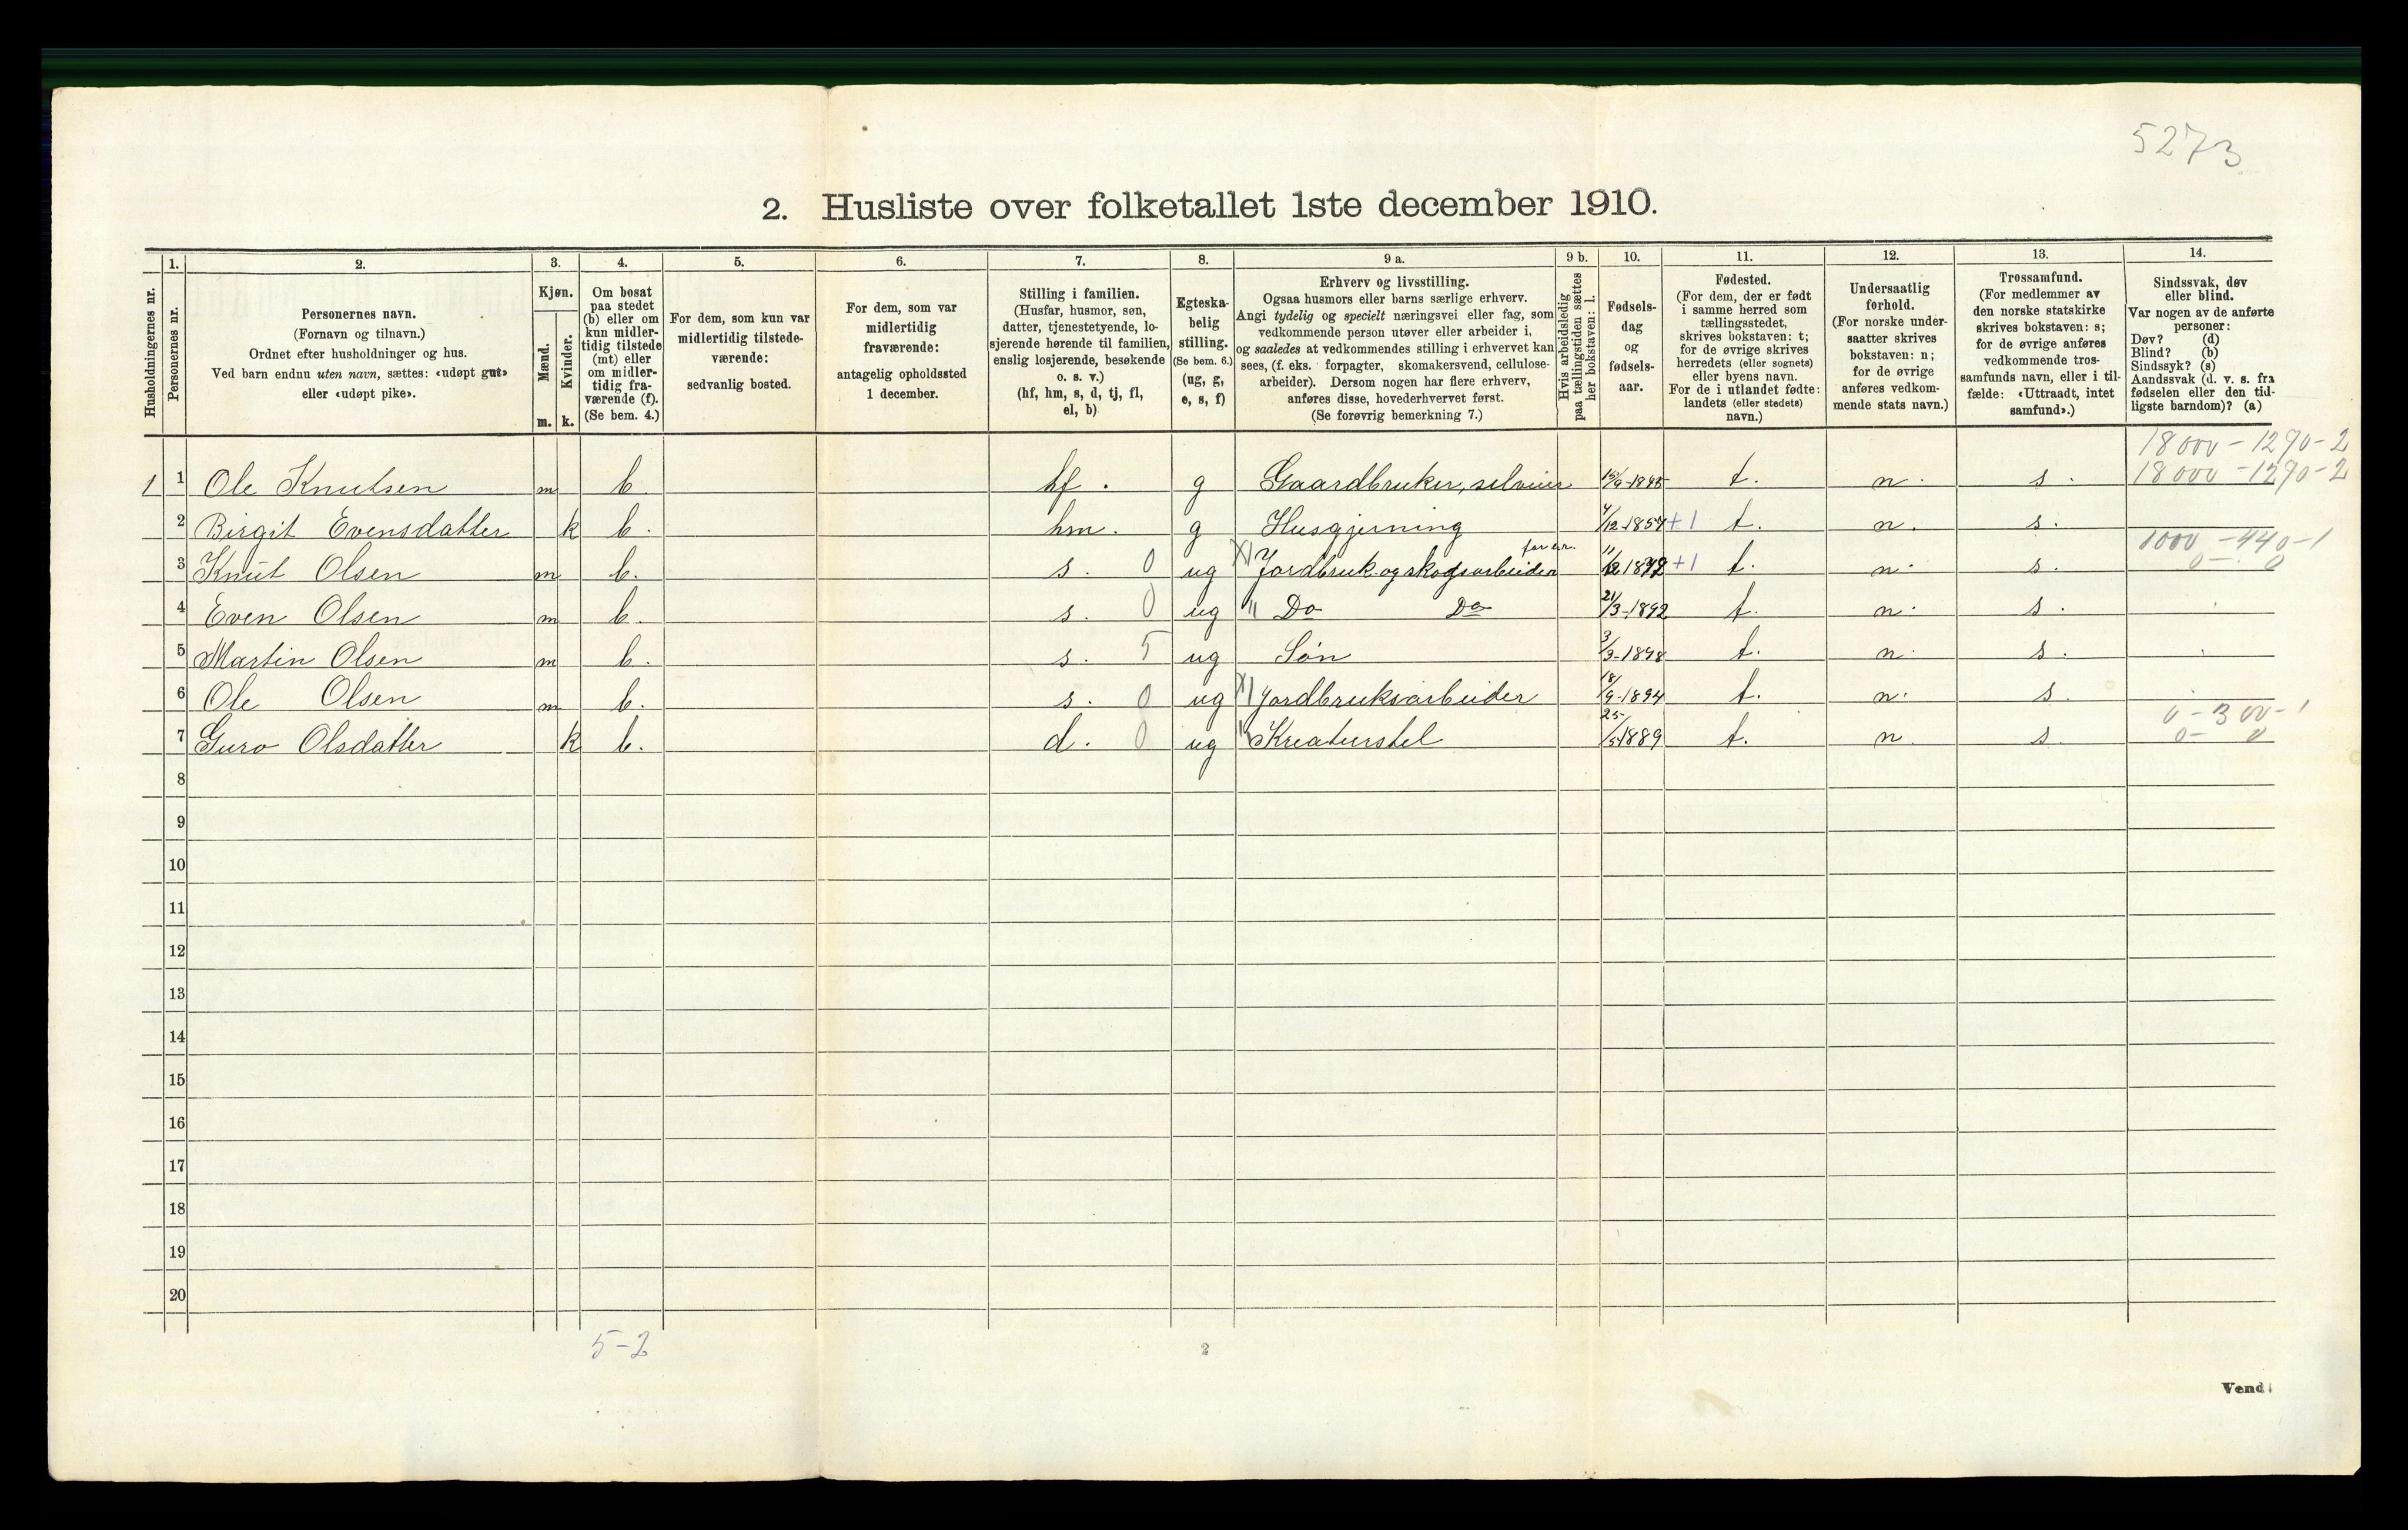 5273
2. Husliste over folketallet 1ste december 1910.
1. 2. 3. 4. 5. 6. 7. 8. 9 a. 9 b. 10. 11. 12. 13. 14.
Husholdningernes nr.
Personernes nr.
Personernes navn.
(Fornavn og tilnavn.)
Ordnet efter husholdninger og hus.
Ved barn endnu uten navn, sættes: «udøpt gut»
eller «udøpt pike».
Kjøn.
Mænd.
Kvinder.
m. k.
Om bosat
paa stedet
(b) eller om
kun midler-
tidig tilstede
(mt) eller
om midler-
tidig fra-
værende (f).
(Se bem. 4.)
For dem, som kun var
midlertidig tilstede-
værende:
sedvanlig bosted.
For dem, som var
midlertidig
fraværende:
antagelig opholdssted
1 december.
Stilling i familien.
(Husfar, husmor, søn,
datter, tjenestetyende, lo-
sjerende hørende til familien,
enslig losjerende, besøkende
o. s. v.)
(hf, hm, s, d, tj, fl,
el, b)
Egteska-
belig
stilling.
(Se bem. 6.)
(ug, g,
e, s, f)
Erhverv og livsstilling.
Ogsaa husmors eller barns særlige erhverv.
Angi tydelig og specielt næringsvei eller fag, som
vedkommende person utøver eller arbeider i,
og saaledes at vedkommendes stilling i erhvervet kan
sees, (f. eks. forpagter, skomakersvend, cellulose-
arbeider). Dersom nogen har flere erhverv,
anføres disse, hovederhvervet først.
(Se forøvrig bemerkning 7.)
Hvis arbeidsledig
paa tællingstiden sættes
her bokstaven: l.
Fødsels-
dag
og
fødsels-
aar.
Fødested.
(For dem, der er født
i samme herred som
tællingsstedet,
skrives bokstaven: t;
for de øvrige skrives
herredets (eller sognets)
eller byens navn.
For de i utlandet fødte:
landets (eller stedets)
navn.)
Undersaatlig
forhold.
(For norske under-
saatter skrives
bokstaven: n;
for de øvrige
anføres vedkom-
mende stats navn.)
Trossamfund.
(For medlemmer av
den norske statskirke
skrives bokstaven: s;
for de øvrige anføres
vedkommende tros-
samfunds navn, eller i til-
fælde: «Uttraadt, intet
samfund».)
Sindssvak, døv
eller blind.
Var nogen av de anførte
personer:
Døv? (d)
Blind? (b)
Sindssyk? (s)
Aandssvak (d. v. s. fra
fødselen eller den tid-
ligste barndom)? (a)
18000 - 1290 - 2
1 1 Ole Knutsen m b hf. g Gaardbruker, selveier t. n. s. 18000 - 1290 - 2
2 Birgit Evensdatter k b. hm. g Husgjerning 4/12-1857 +1 t. n. s.
1000 - 440 - 1
3 Knut Olsen m b. s. 0 ug Jordbruk- og skogsarbeider for far. +1 t. n. s. 0 - 0
4 Even Olsen m b. s. 0 ug " Do Do 21/3-1892 t. n. s.
5 Martin Olsen m b. s. 5 ug Søn 3/3-1898 t. n. s.
6 Ole Olsen m b. s. 0 ug Jordbruksarbeider 18/9-1894 t. n. s.
0 - 300 - 1
7 Guro Olsdatter k b. d. 0 ug Kreaturstel 25/5-1889 t. n. s. 0 - 0
8
9
10
11
12
13
14
15
16
17
18
19
20
5-2
2
Vend!